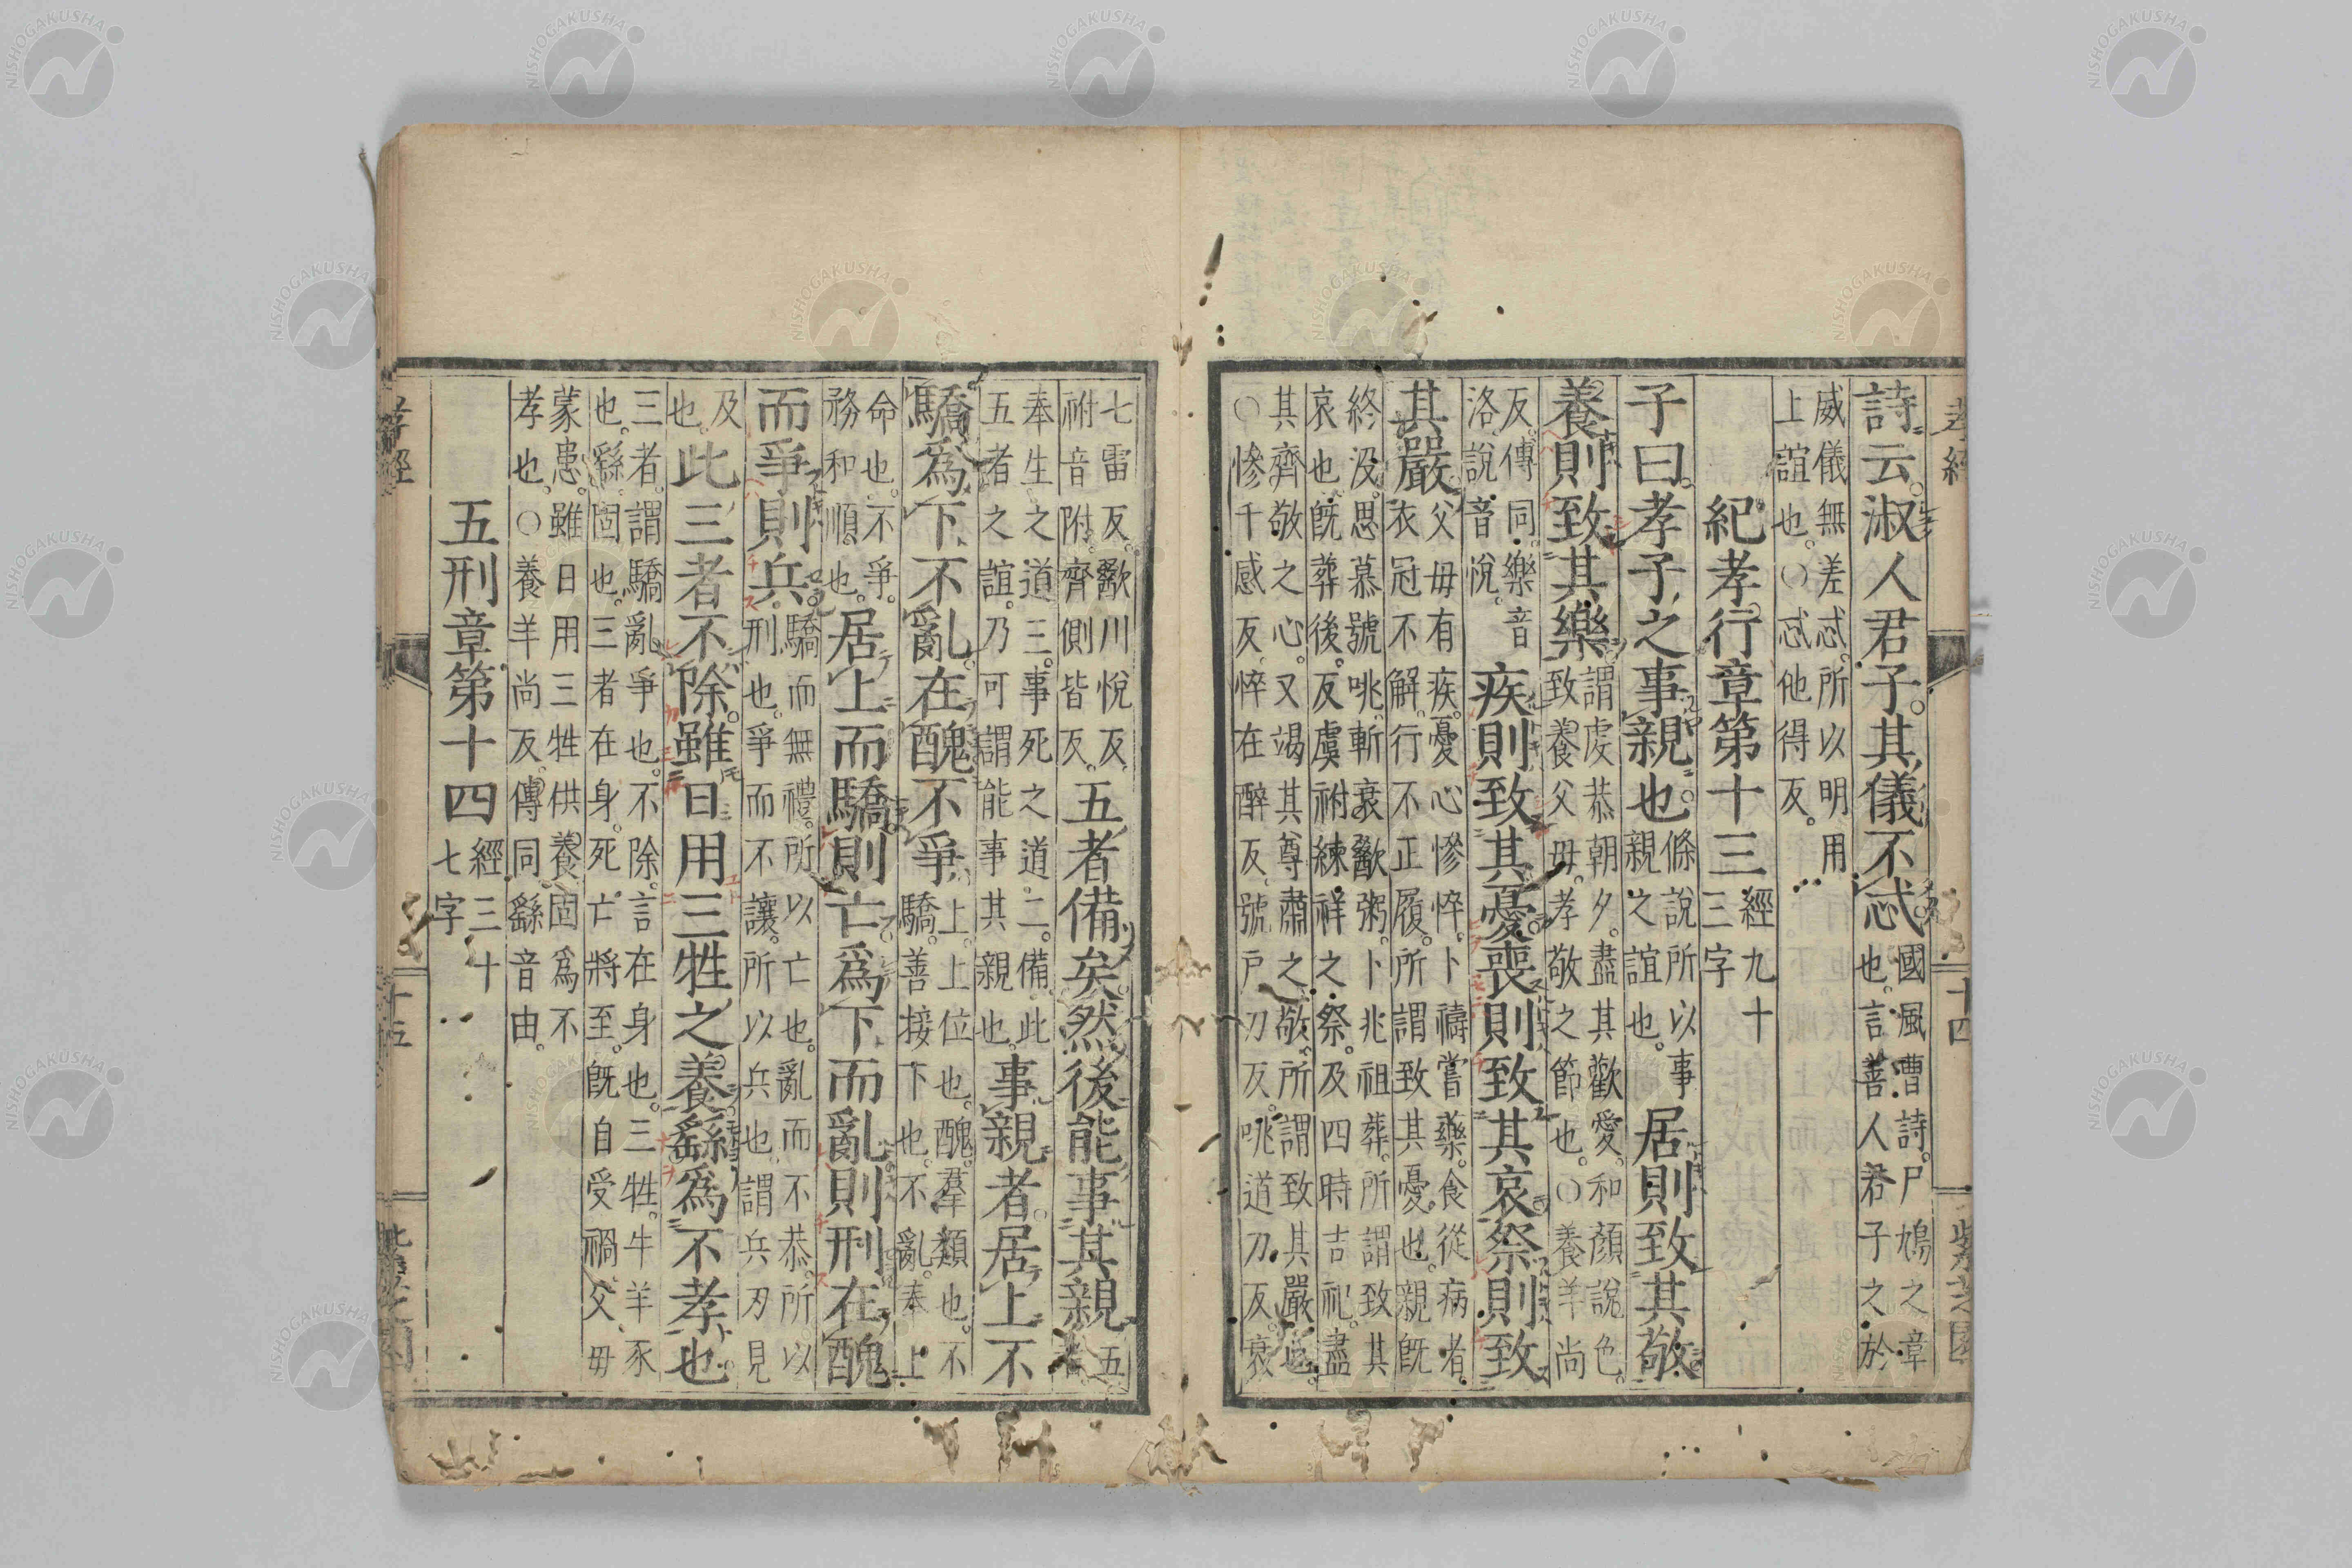 詩云。淑人君子。其儀不忒。國風曹詩。尸鳩之章
也。言善人君子之於
威儀無差忒。所以明用
上誼也。○忒他得反。
紀孝行章第十三 經九十
三字
子曰。孝子之事親也。條說所以事
親之誼也。居則致其敬
養則致其樂 謂虔恭朝夕。盡其歡愛。和顏說色。
致養父母。孝敬之節也。○養羊尚
反。傳同。樂音
洛。說音悅。疾則致其憂喪則致其哀祭則致
其嚴 父母有疾。憂心慘悴。卜禱嘗藥。食從病者。
衣冠不解。行不正履。所謂致其憂也。親既
終沒。思慕號咷。斬衰歠粥。卜兆祖葬。所謂致其
哀也。既葬後。反虞祔練祥之祭。及四時吉祀。盡
其齊敬之心。又竭其尊肅之敬。所謂致其嚴也。
○慘千感反。悴在醉反。號戶刀反。咷道刀反。衰
七雷反。歠川悅反。
祔音附。齊側皆反。五者備矣。然後能事其親 五
者
奉生之道三。事死之道二。備此
五者之誼。乃可謂能事其親也。事親者。居上不
驕爲下不亂。在醜不爭 上上位也。醜。羣類也。不
驕。善接下也。不亂。奉上
命也。不爭。
務和順也。居上而驕則亡爲下而亂則刑在醜
而爭則兵。驕而無禮。所以亡也。亂而不恭。所以
刑也。爭而不讓。所以兵也。謂兵刃見
及
也。此三者不除。雖日用三牲之養繇爲不孝也
三者。謂驕亂爭也。不除。言在身也。三牲。牛羊豕
也。繇。固也。三者在身。死亡將至。既自受禍。父母
蒙患。雖日用三牲供養。固爲不
孝也。○養羊尚反。傳同。繇音由。
五刑章第十四 經三十
七字
孝經
十四
紫芝園
孝經
十五
紫芝園